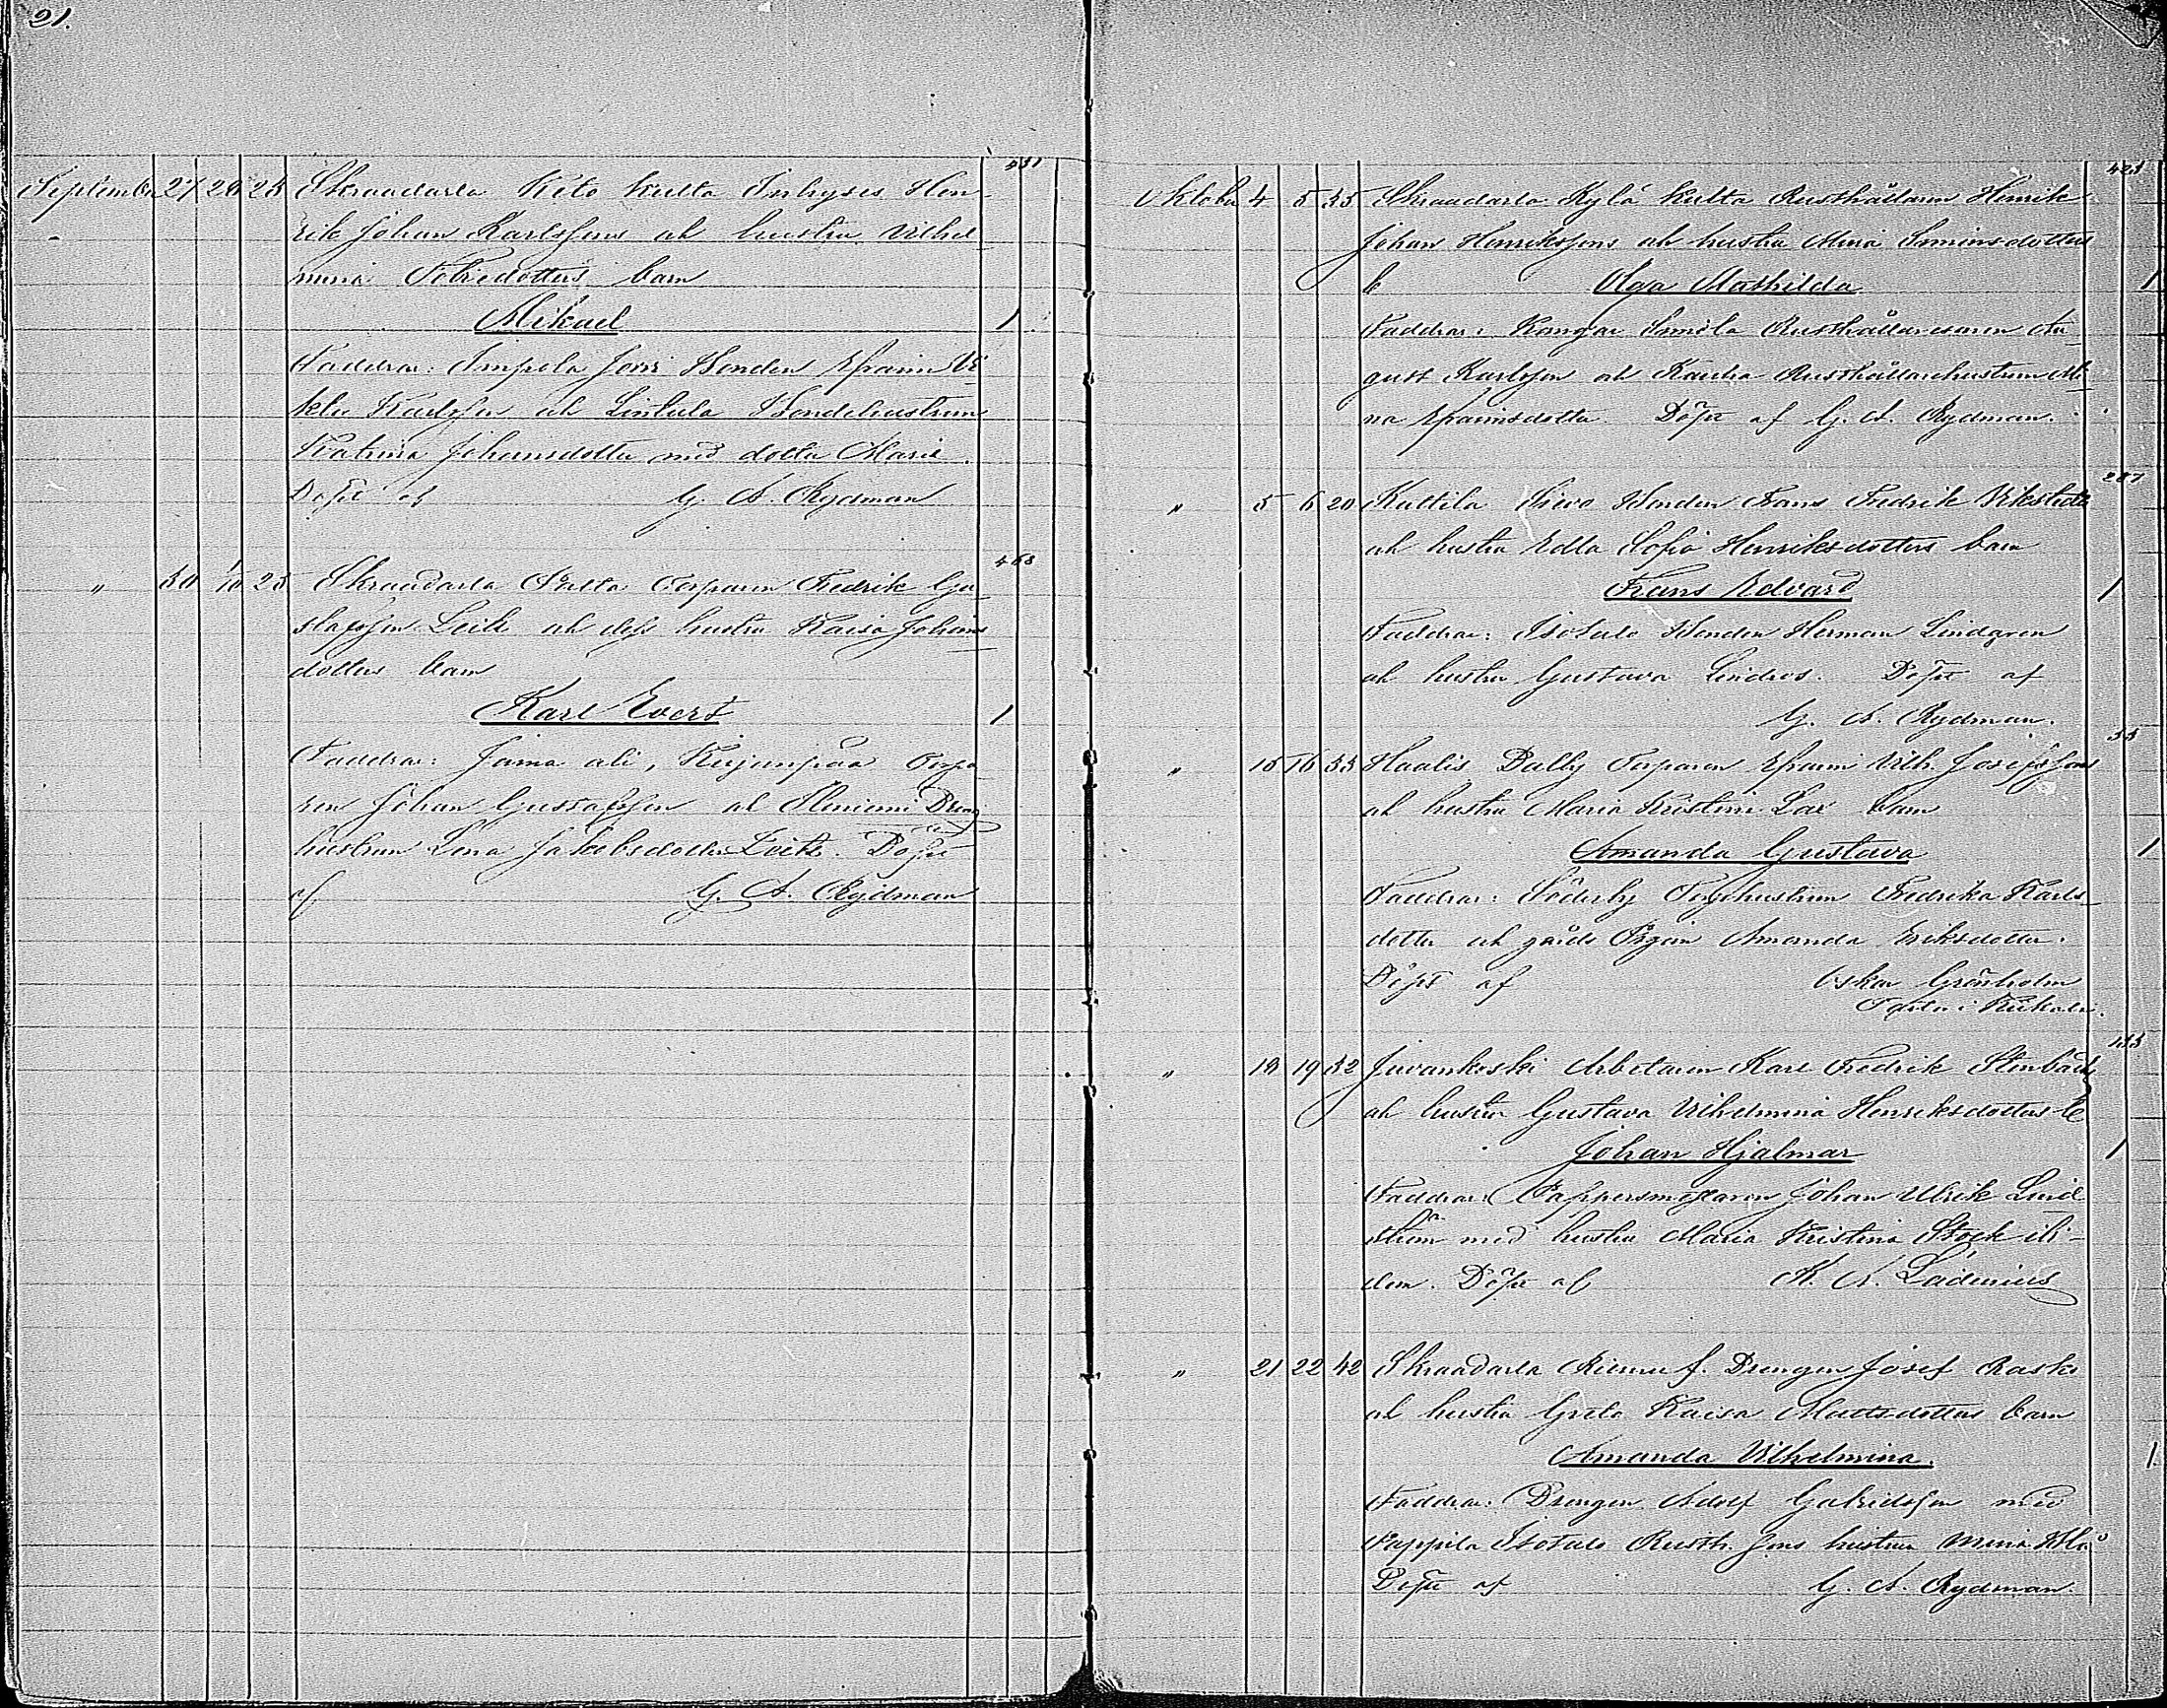 21.
431
September 27 28 25 Skraadarla Keto Kulta Inhyses Hen-
rik Johan Karlssons och hustru Vilhel
mina Tobiedotters barn
Mikael 1
Faddrar: Impola Jons Bonden Efraim
Karlsson och Lintula Bondehustrun
Katrina Johansdotter med dotter Maria.
Döpt af G. A. Rydman
468
" 30 1/10 25 Skraadarla Torparen Fredrik Gu
stafsson Leik och dess hustru Kaisa Johans
dotters barn
Karl Evert 1
Faddrar: Jama ali, Kujanpää Torpa
ren Johan Gustafsson och Dreng
hustrun Lena Jakobsdotter Leik. Döpt
af G. A. Rydman
421
Oktober 4 5 35 Skraadarla Kylä Kulta Rusthållaren Henrik
Johan Henrikssons och hustru Mina Siminsdotters
b Olga Mathilda 1
Faddrar: Kangar Simola Rusthållaresonen Au
gust Karlsson och Kauha Rusthållarehustrun
na Efraimsdotter. Döpt af G. A. Rydman.
287
" 5 6 20 Kuttila Bonden Frans Fredrik Vikstedt
och hustru Edla Sofia Henriksdotters barn
Frans Edvard 1
Faddrar: Isotalo Bonden Herman Lindgren
och hustru Gustava Lindros. Döpt af
G. A. Rydman.
" 15 16 33 Haalis Dalby Torparen Efraim Vilh. Josefssons
och hustru Maria Kristina Lax barn
Amanda Gustava 1
Faddrar: Söderby Torphustrun Fredrika Karls
dotter och gårds Pigan Amanda Eriksdotter.
Döpt af Oskar Grönholm
133
" 18 19 32 Juvankoski Arbetaren Karl Fredrik Stenbäck
och hustru Gustava Vilhelmina Henriksdotters b
Johan Hjalmar 1
Faddrar: Pappersmästaren Johan Ulrik Lind
ström med hustru Maria Kristina Stock ibi-
dem. Döpt af K. A. Ladenius
" 21 22 42 Skraadarla f. Drengen Josef Rask
och hustru Greta Kaisa Mattsdotters barn
Amanda Vilhelmina. 1
Faddrar: Drengen Adolf Gabrielsson med
Pappila Isotalo Rusth. sons hustru Mina
Döpt af G. A. Rydman.